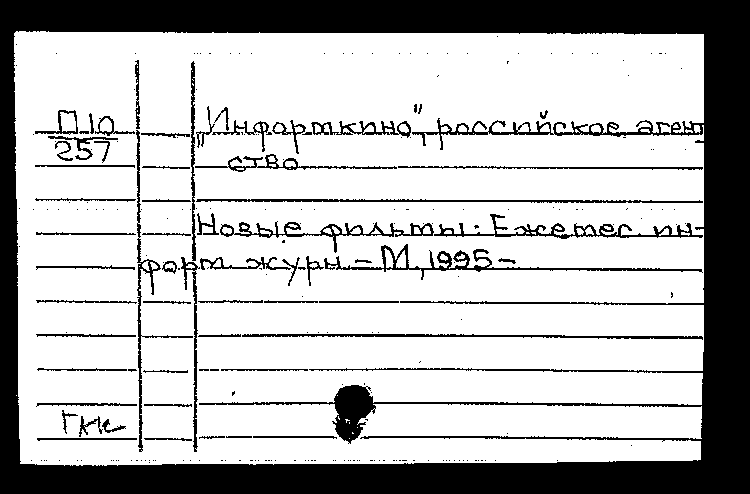 П10
257
„Информкино", российское агент
ство
Новые фильмы: Ежемес. ин-
форм. журн. – М., 1995 –
ГКК